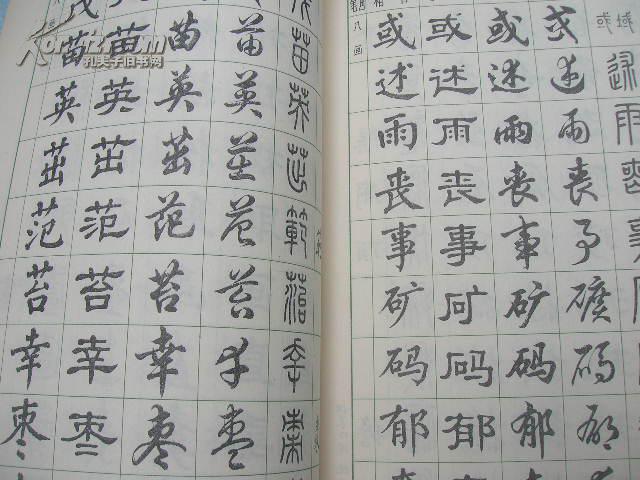 Kongfz.com
孔夫子旧书网
茂 茂 茂 茂 茂
苗 苗 苗 苗 苗
英 英 英 英 英
茁 茁 茁 茁 茁
范 范 范 范 範
苔 苔 苔 苔
幸 幸 幸 幸 幸
枣 枣 枣 枣 棗
八画
或 或 或 或 或 域
述 述 述 述 述
雨 雨 雨 雨 雨
丧 丧 丧 丧 喪
事 事 事 事 事
矿 矿 矿 礦
码 码 码 码
郁 郁 郁 郁